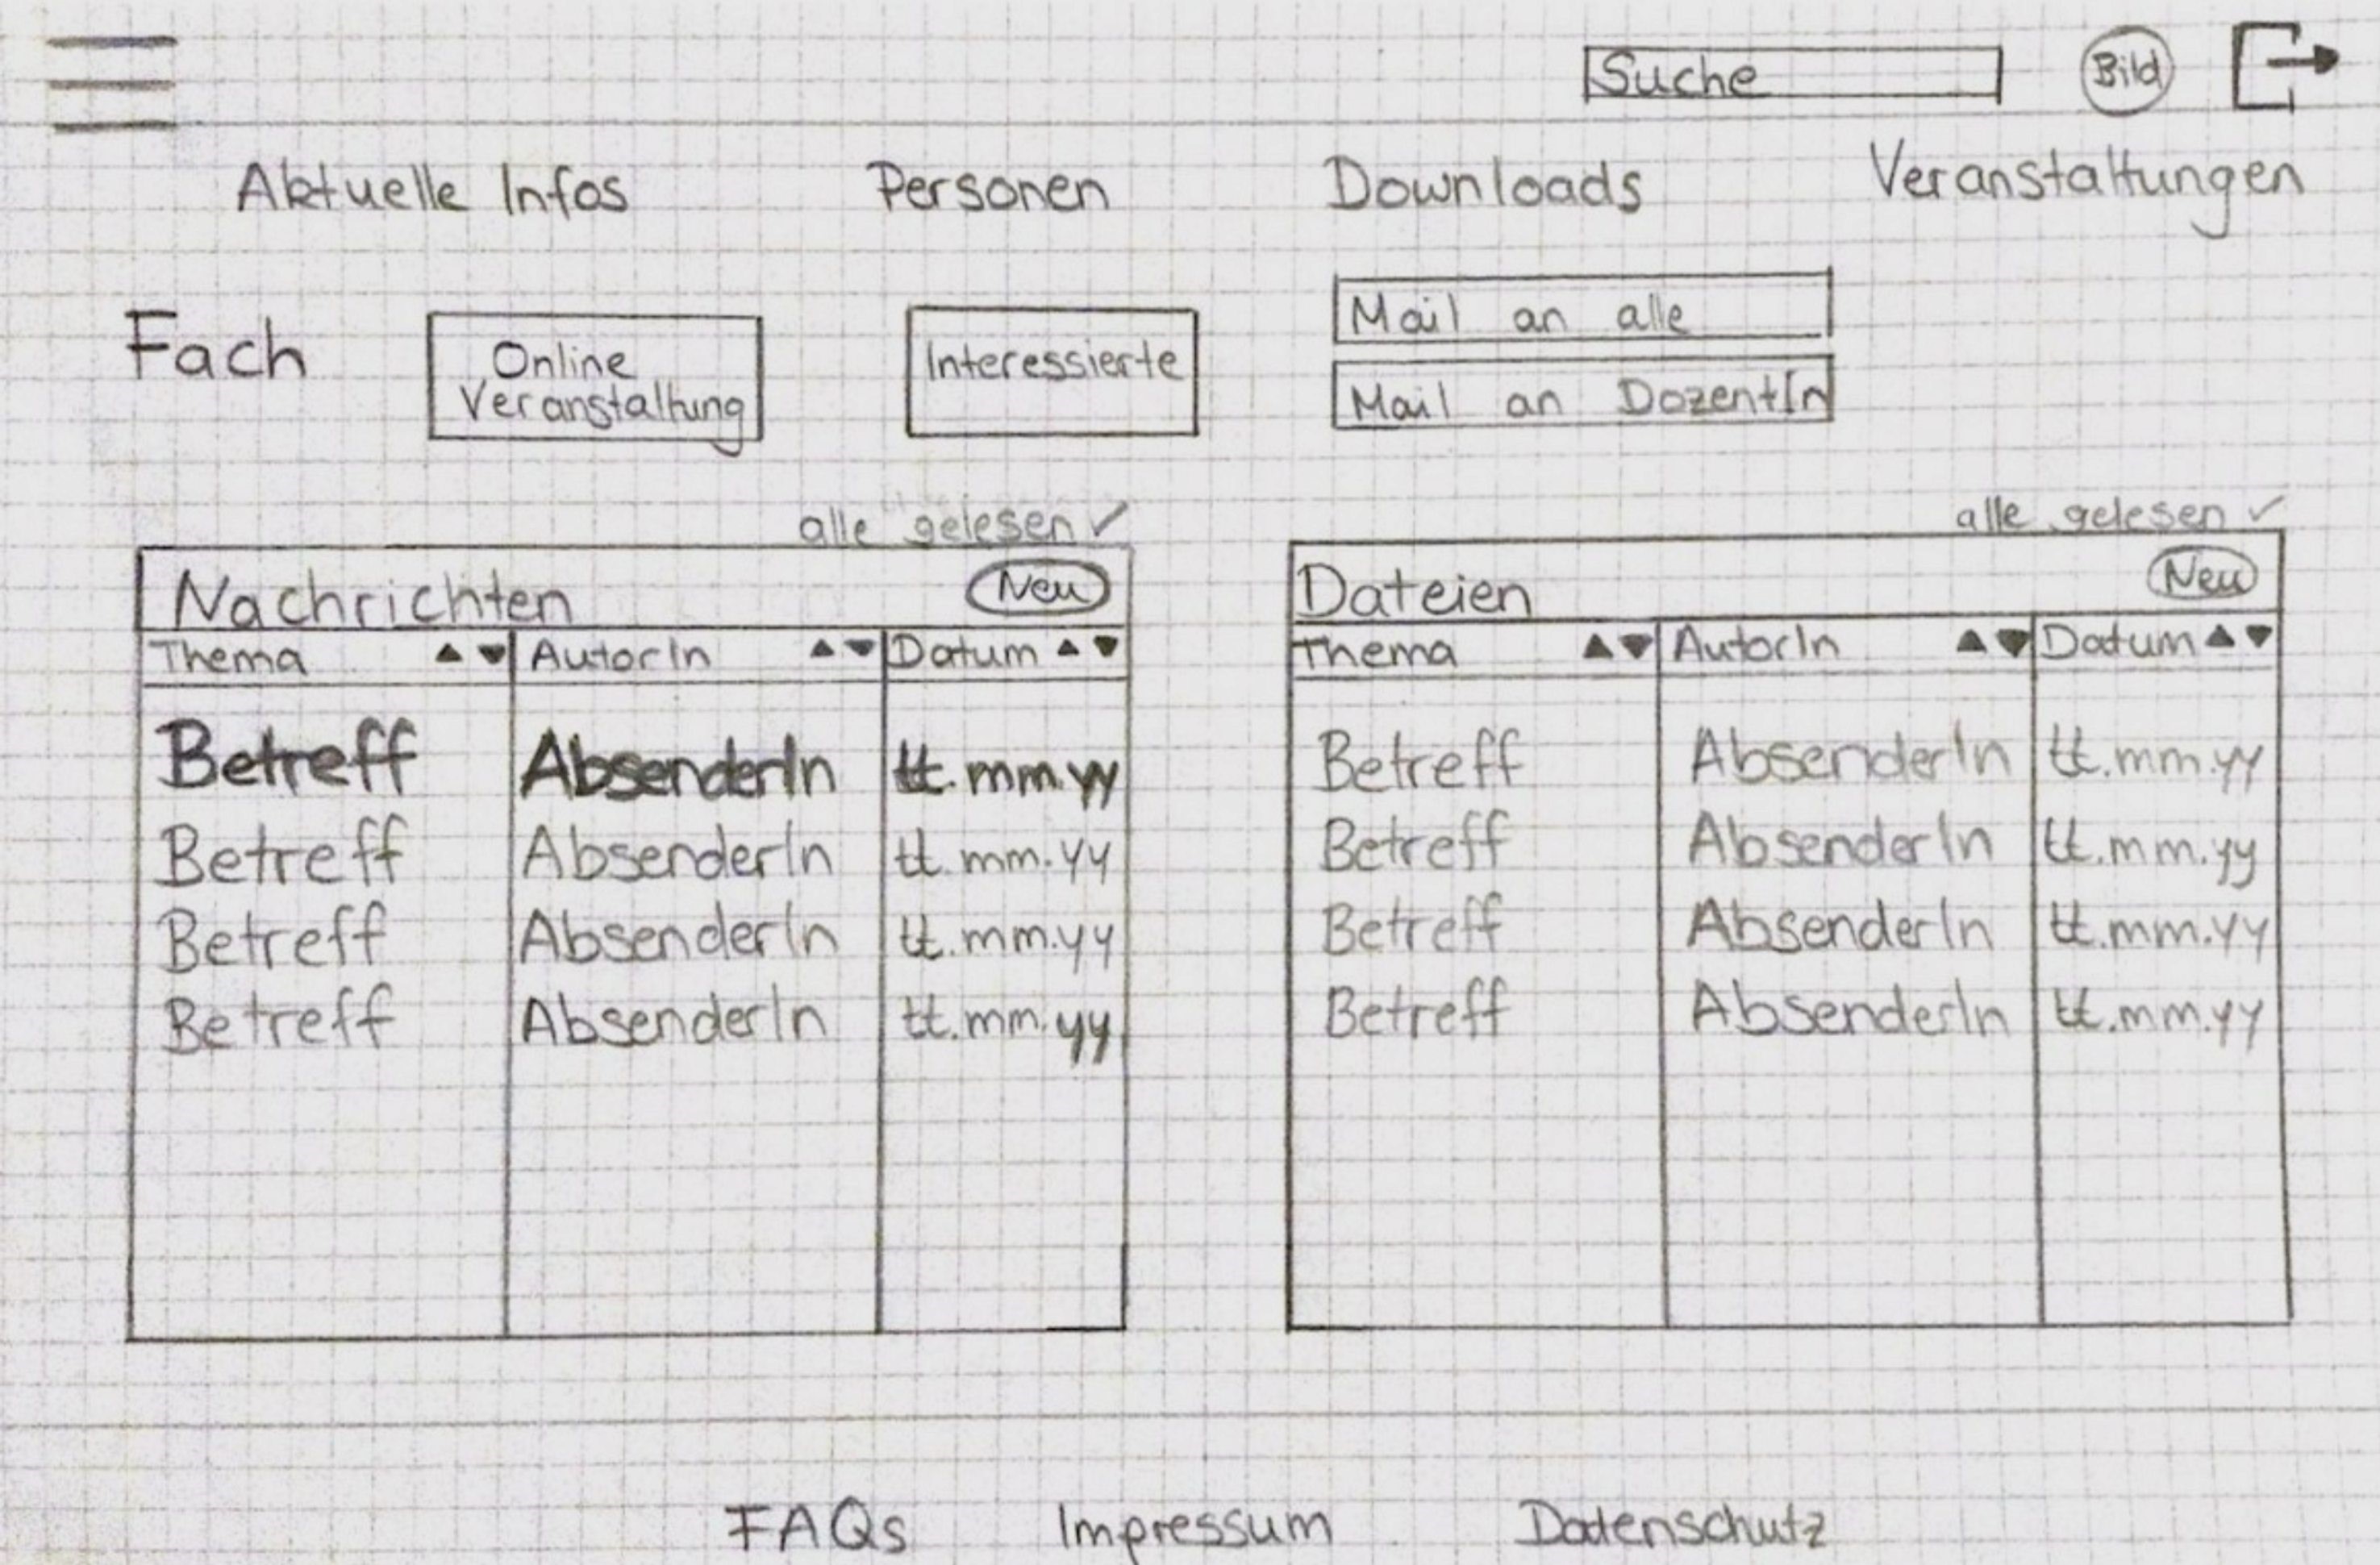 Suche Bild
Aktuelle Infos Personen Downloads Veranstaltungen
Fach
Online
Veranstaltung
Interessierte
Mail an alle
Mail an DozentIn
alle gelesen ✓
Nachrichten Neu
Thema ▲▼ AutorIn ▲▼ Datum ▲▼
Betreff AbsenderIn tt.mm.yy
Betreff AbsenderIn tt.mm.yy
Betreff AbsenderIn tt.mm.yy
Betreff AbsenderIn tt.mm.yy
alle gelesen ✓
Dateien Neu
Thema ▲▼ AutorIn ▲▼ Datum ▲▼
Betreff AbsenderIn tt.mm.yy
Betreff AbsenderIn tt.mm.yy
Betreff AbsenderIn tt.mm.yy
Betreff AbsenderIn tt.mm.yy
FAQs Impressum Datenschutz